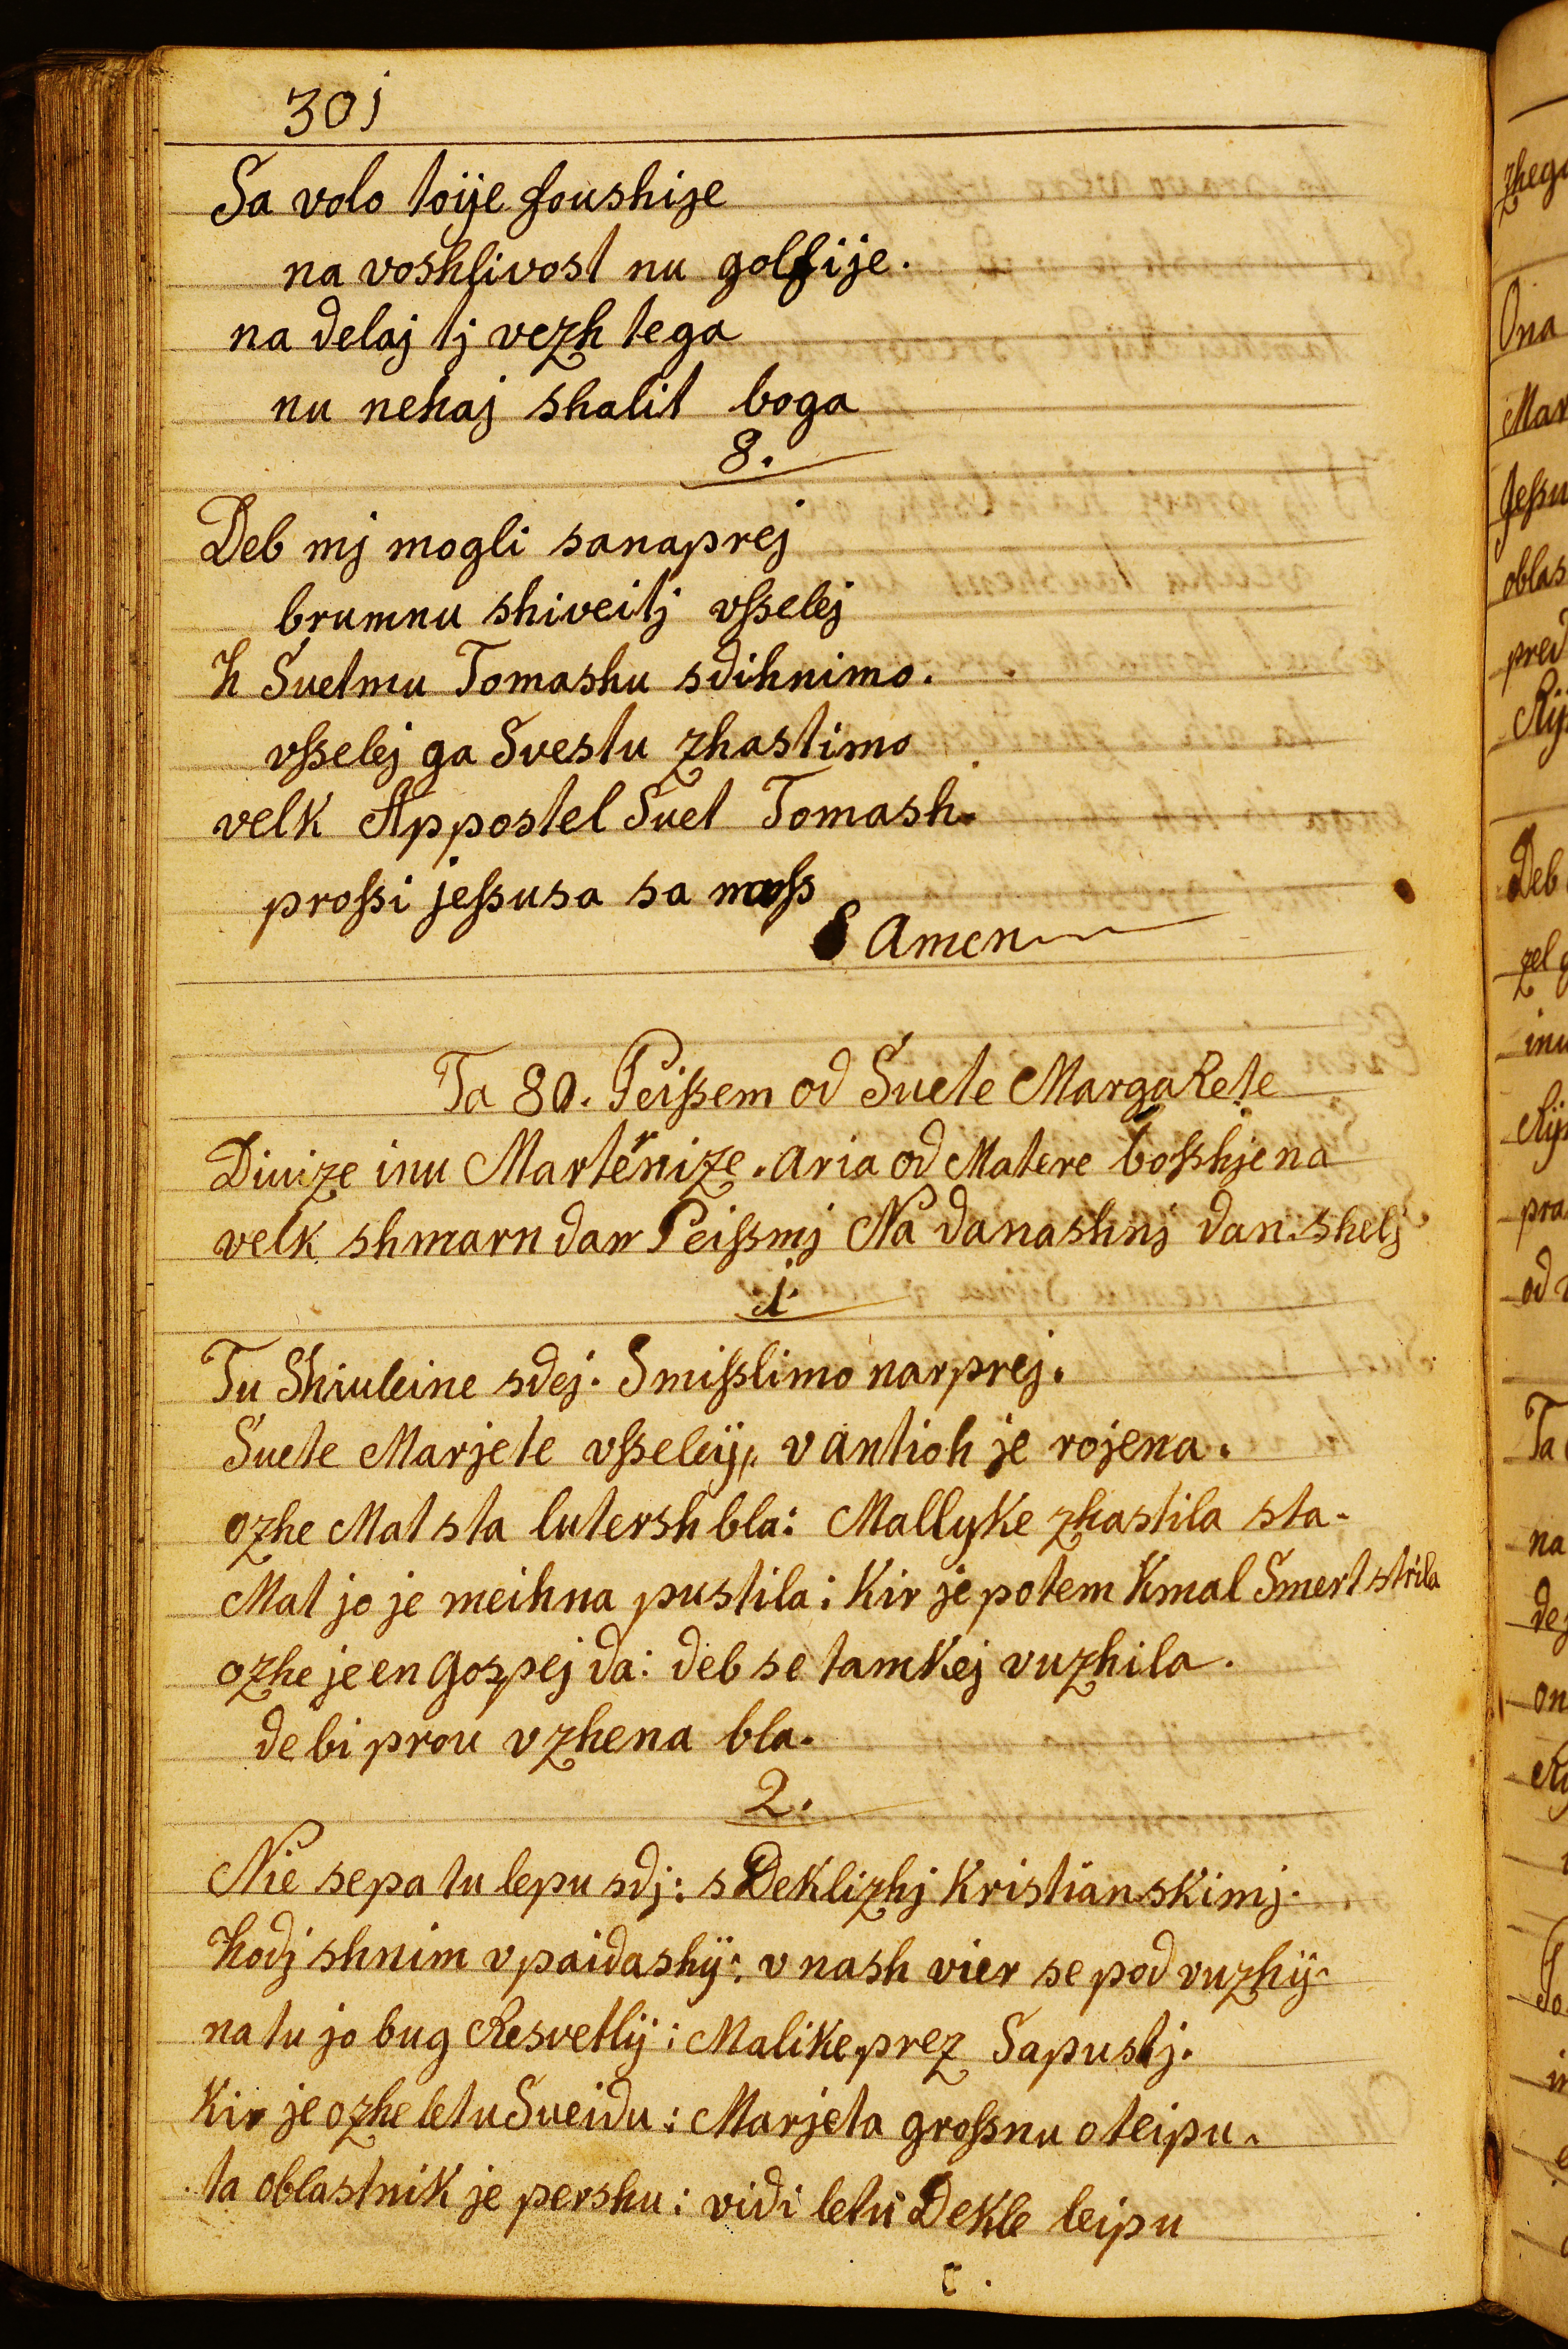 301
Sa volo toije foushije
na voshfivost nu golfije.
na delaj tj vezh tega
nu nehaj shalit boga
8.
Deb mj mogli sanaprej
brumnu shiveitj vſselej
h Suetmu Tomashu sdihnimo.
vſselej ga Svestu zhastimo
velk Appostel Suet Tomash.
proſsi jeſsusa sa naſs
Amen
Ta 80. Peiſsem od Suete MargaRete
Divize inu Marternize. aria od Matere boſshje na
velk shmarn dan Peiſsmj Na danashnj dan shelj
1.
Tu Shiuleine sdej. Smiſslimo narprej.
Suete Marjete vſseleij,, v antioh je rojena.
ozhe Mat sta lutersh bla: Mallyke zhastila sta.
Mat jo je meihna pustila: Kir je potem Kmal Smert strila
ozhe je en gospej da: deb se tamkej vuzhila.
de bi prou vzhena bla.
2.
Nie se pa tu lepu sdj: s Deklizhj Kristianskimj.
hodj shnim v paidashij: v nash vier se pod vuzhij.
na tu jo bug Resvetlij: Malike prez Sapustj.
Kir je ozhe letu Sueidu: Marjeta groſsnu oteipu.
ta oblastnik je pershu: vidi letu Dekle leipu